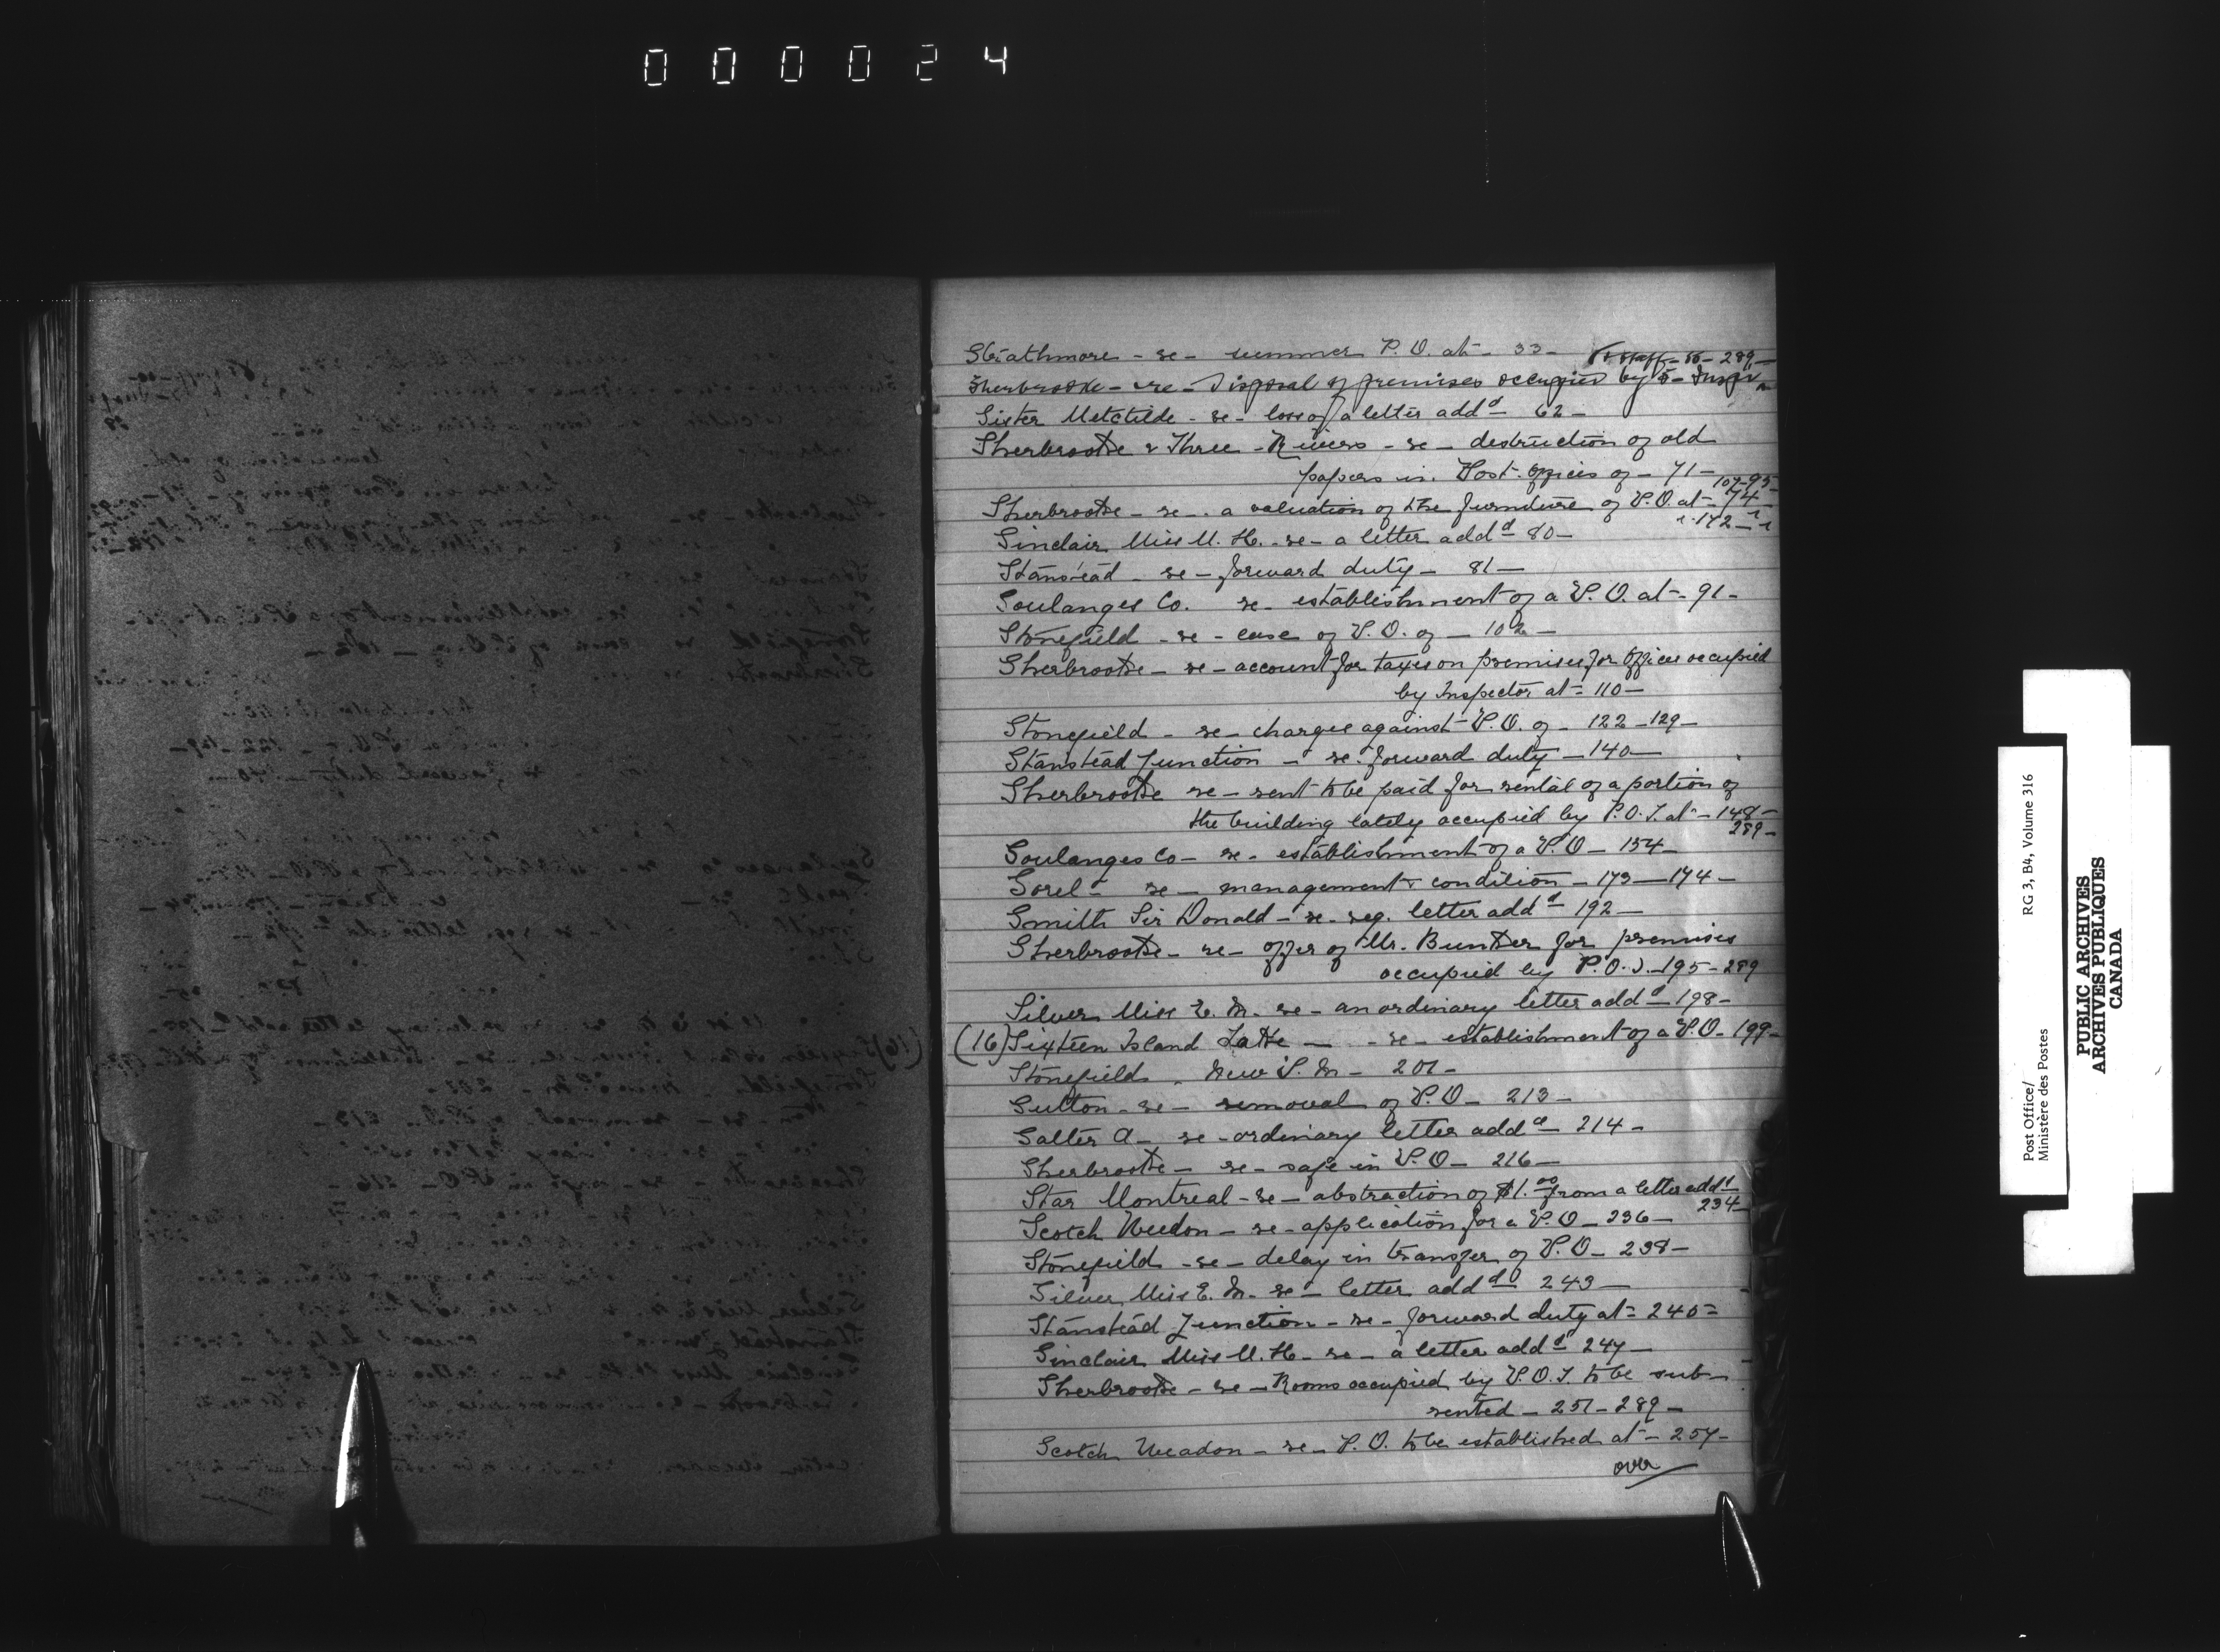 000024
Strathmore - re - summer P.O. at - 33 -
& staff - 55 - 289 -
Sherbrooke - re - Disposal of premises occupied by - Inspr
Sister Metchilde - re - loss of a letter addd 62 -
Sherbrooke & Three - Rivers - re - destruction of old
papers in Post-offices of - 71 -
107-95-
Sherbrooke - re - a valuation of the furniture of P.O. at - 74 -
142 -
Sinclair Miss M. H. - re - a letter addd 80 -
Stanstead - re - forward duty - 81 -
Soulanges Co. re - establishment of a P.O. at - 91 -
Stonefield - re - case of P.O. of - 102 -
Sherbrooke - re - account for taxes on premises for offices occupied
by Inspector at - 110 -
Stonefield - re - charges against P.O. of - 122 - 129 -
Stanstead Junction - re - forward duty - 140 -
Sherbrooke re - rent to be paid for rental of a portion of
the building lately occupied by P.O.I. at - 148 -
289 -
Soulanges Co - re - establishment of a P.O - 154 -
Sorel - re - management & condition - 173 - 174 -
Smith Sir Donald - re - reg. letter addd 192 -
Sherbrooke - re - offer of Mr. Bunker for premises
occupied by P.O.I. - 195 - 289
Silver Miss E. M. re - an ordinary letter addd - 198 -
(16) Sixteen Island Lake - re - establishment of a P.O - 199 -
Stonefield - New P.M - 201 -
Sutton - re - removal of P.O - 213 -
Salter A - re - ordinary letter addd - 214 -
Sherbrooke - re - safe in P.O - 216 -
Star Montreal - re - abstraction of $1.00 from a letter addd
234 -
Scotch Weedon - re - application for a P.O - 236 -
Stonefield - re - delay in transfer of P.O - 238 -
Silver Miss E. M. re - letter addd 243 -
Stanstead Junction - re - forward duty at - 240 -
Sinclair Miss M. H - re - a letter addd 247 -
Sherbrooke - re - Rooms occupied by P.O.I. to be sub-
rented - 251 - 289 -
Scotch Weedon - re - P.O. to be established at - 257 -
over
Post Office/
Ministère des Postes
RG 3, B4, Volume 316
PUBLIC ARCHIVES
ARCHIVES PUBLIQUES
CANADA